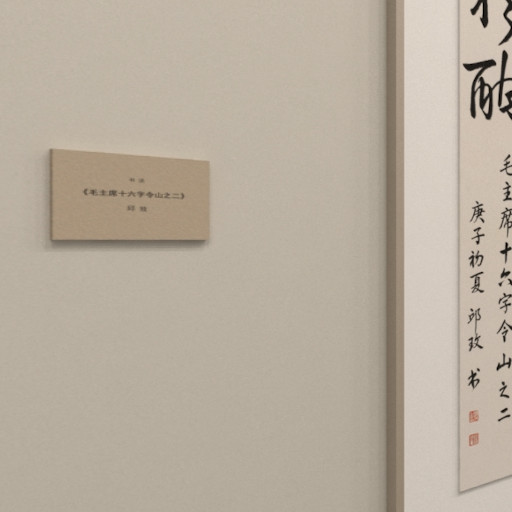 书 法
《毛主席十六字令山之二》
邱 玫
酣
毛主席十六字令山之二
庚子初夏 邱玫 书